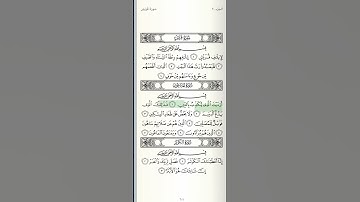 سورة قريش
الجزء ٣٠
سُورَةُ قُرَيْشٍ
بِسْمِ اللَّهِ الرَّحْمَٰنِ الرَّحِيمِ
لِإِيلَٰفِ قُرَيْشٍ ١ إِۦلَٰفِهِمْ رِحْلَةَ الشِّتَآءِ وَالصَّيْفِ
٢ فَلْيَعْبُدُوا رَبَّ هَٰذَا الْبَيْتِ ٣ الَّذِىٓ أَطْعَمَهُم
مِّن جُوعٍ وَءَامَنَهُم مِّنْ خَوْفٍ ٤
سُورَةُ الْمَاعُونِ
بِسْمِ اللَّهِ الرَّحْمَٰنِ الرَّحِيمِ
أَرَءَيْتَ الَّذِى يُكَذِّبُ بِالدِّينِ ١ فَذَٰلِكَ الَّذِى
يَدُعُّ الْيَتِيمَ ٢ وَلَا يَحُضُّ عَلَىٰ طَعَامِ الْمِسْكِينِ ٣
فَوَيْلٌ لِّلْمُصَلِّينَ ٤ الَّذِينَ هُمْ عَن صَلَاتِهِمْ سَاهُونَ
٥ الَّذِينَ هُمْ يُرَآءُونَ ٦ وَيَمْنَعُونَ الْمَاعُونَ ٧
سُورَةُ الْكَوْثَرِ
بِسْمِ اللَّهِ الرَّحْمَٰنِ الرَّحِيمِ
إِنَّآ أَعْطَيْنَٰكَ الْكَوْثَرَ ١ فَصَلِّ لِرَبِّكَ وَانْحَرْ ٢
إِنَّ شَانِئَكَ هُوَ الْأَبْتَرُ ٣